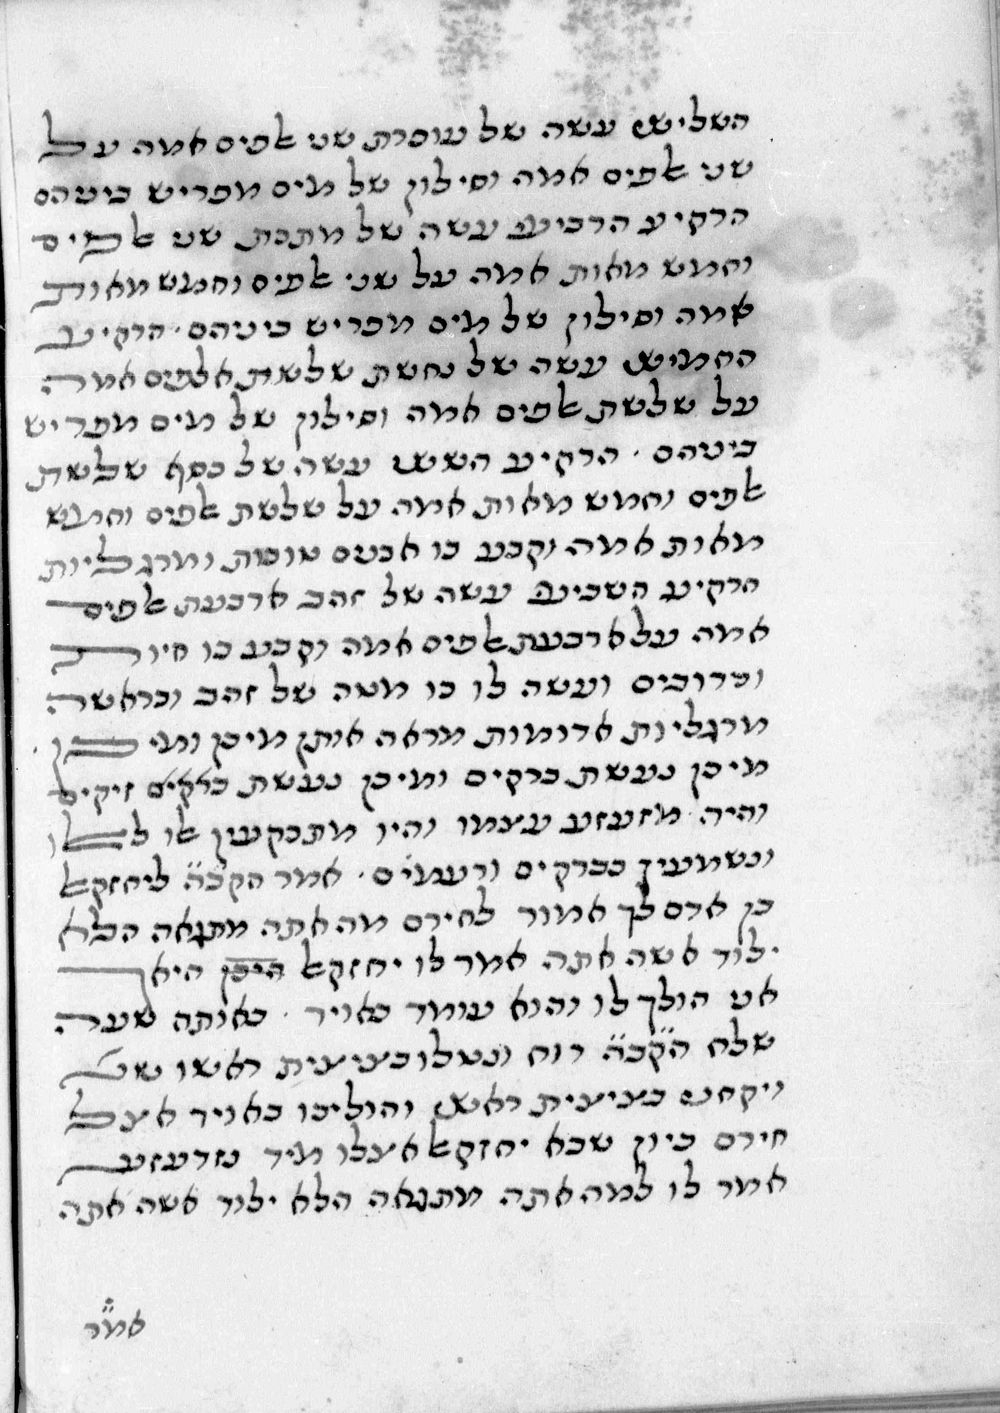 השלישי עשה של עופרת שני אלפים אמה על
שני אלפים אמה וסילון של מים מפריש ביניהם
הרקיע הרביעי עשה של מתכת שני אלפים
וחמש מאות אמה על שני אלפים וחמש מאות
אמה וסילון של מים מפריש ביניהם ∙ הרקיע
החמישי עשה של נחשת שלשת אלפים אמה
על שלשת אלפים אמה וסילון של מים מפריש
ביניהם ∙ הרקיע הששי עשה של כסף שלשת
אלפים וחמש מאות אמה על שלשת אלפים וחמש
מאות אמה וקבע בו אבנים טובות ומרגליות
הרקיע השביעי עשה של זהב ארבעת אלפים
אמה על ארבעת אלפים אמה וקבע בו חיות
וכרובים ועשה לו בו מטה של זהב ובראשה
מרגליות אדומות מראה אותן מיכן ומיכן ∙
מיכן נעשת ברקים ומיכן נעשת זיקים
והיה מזעזע עצמו והיו מתבקעין אלו לאלו
ונשמעין כברקים ורעמים ∙ אמר הקב״ה ליחזקאל
בן אדם לך אמור לחירם מה אתה מתגאה הלא
ילוד אשה אתה אמר לו יחזקאל היאך
אני הולך לו והוא עומד באויר ∙ באותה שעה
שלח הקב״ה רוח ונטלו בציצית ראשו שנ׳
ויקחני בציצית ראשי והוליכו באויר אצל
חירם כיון שבא יחזקאל אצלו מיד נזדעזע
אמר לו למה אתה מתגאה הלא ילוד אשה אתה
אמ״ר